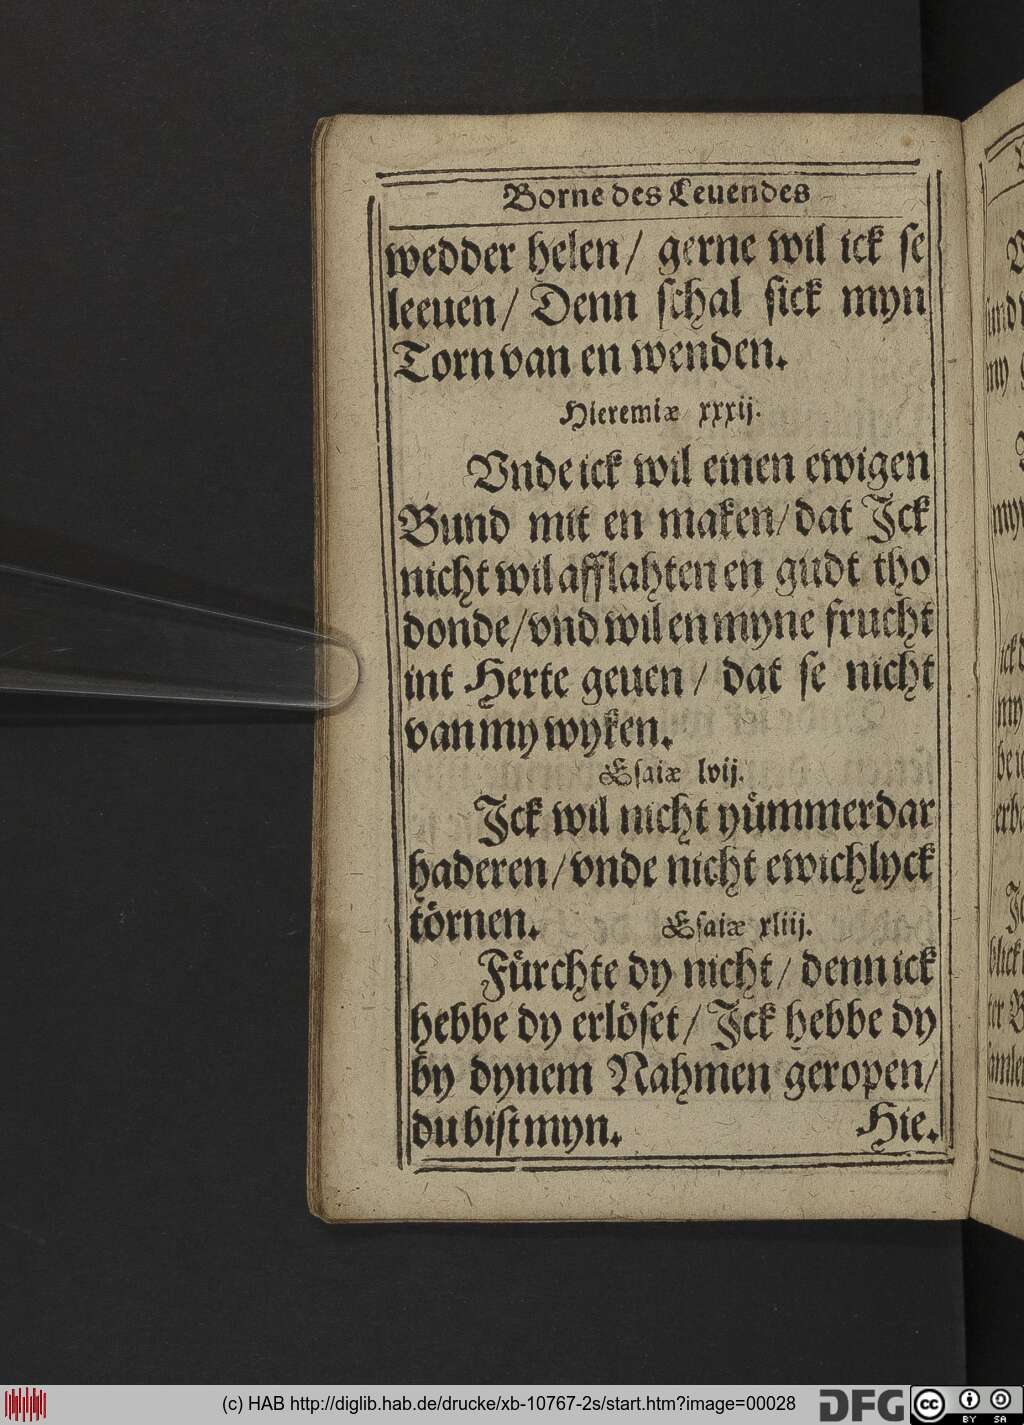 Borne des Leuendes
wedder helen/ gerne wil ick se
leeuen/ Denn schal sick myn
Torn van en wenden.
Hieremiæ xxxij.
Vnde ick wil einen ewigen
Bund mit en maken/ dat Jck
nicht wil afflahten en gudt tho
donde/ vnd wil en myne frucht
int Herte geuen/ dat se nicht
van my wyken.
Esaiæ lvij.
Jck wil nicht yümmerdar
haderen/ vnde nicht ewichlyck
törnen. Esaiæ xliij.
Fürchte dy nicht/ denn ick
hebbe dy erlöset/ Jck hebbe dy
by dynem Nahmen geropen/
du bist myn. Hie.
(c) HAB http://diglib.hab.de/drucke/xb-10767-2s/start.htm?image=00028
DFG
cc BY SA